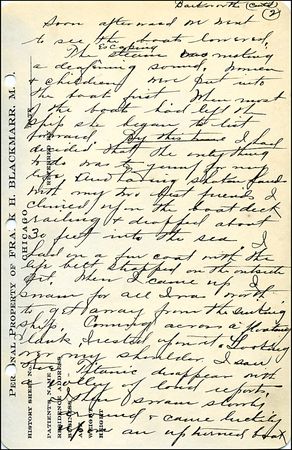 Barkworth (cont)
(2)
Soon afterward we went
to see the boats lowered.
The escaping steam was making
a deafening sound. Women
& children were put into
the boats first. When most
of the boats had left the
ship she began to list
forward. By this time I had
decided that the only thing
to do was to jump for my
life. And having shaken hands
with my two first friends, I
climbed up on the boat deck
railing & dropped about
30 feet into the sea. I
had on a fur coat with the
life belt strapped on the outside
of it. When I came up I
swam for all I was worth
to get away from the sinking
ship. Coming across a floating
plank, I rested upon it. Looking
over my shoulder, I saw
the Titanic disappear with
a volley of loud reports.
swam slowly
& came luckily
an upturned boat
PERSONAL PROPERTY OF FRANK H. BLACKMARR, M.
CHICAGO
HISTORY SHEET NO.
PATIENT'S NAME
RESIDENCE ADDRESS
BUSINESS
AGE
WEIGHT
HEIGHT
REFERRED BY